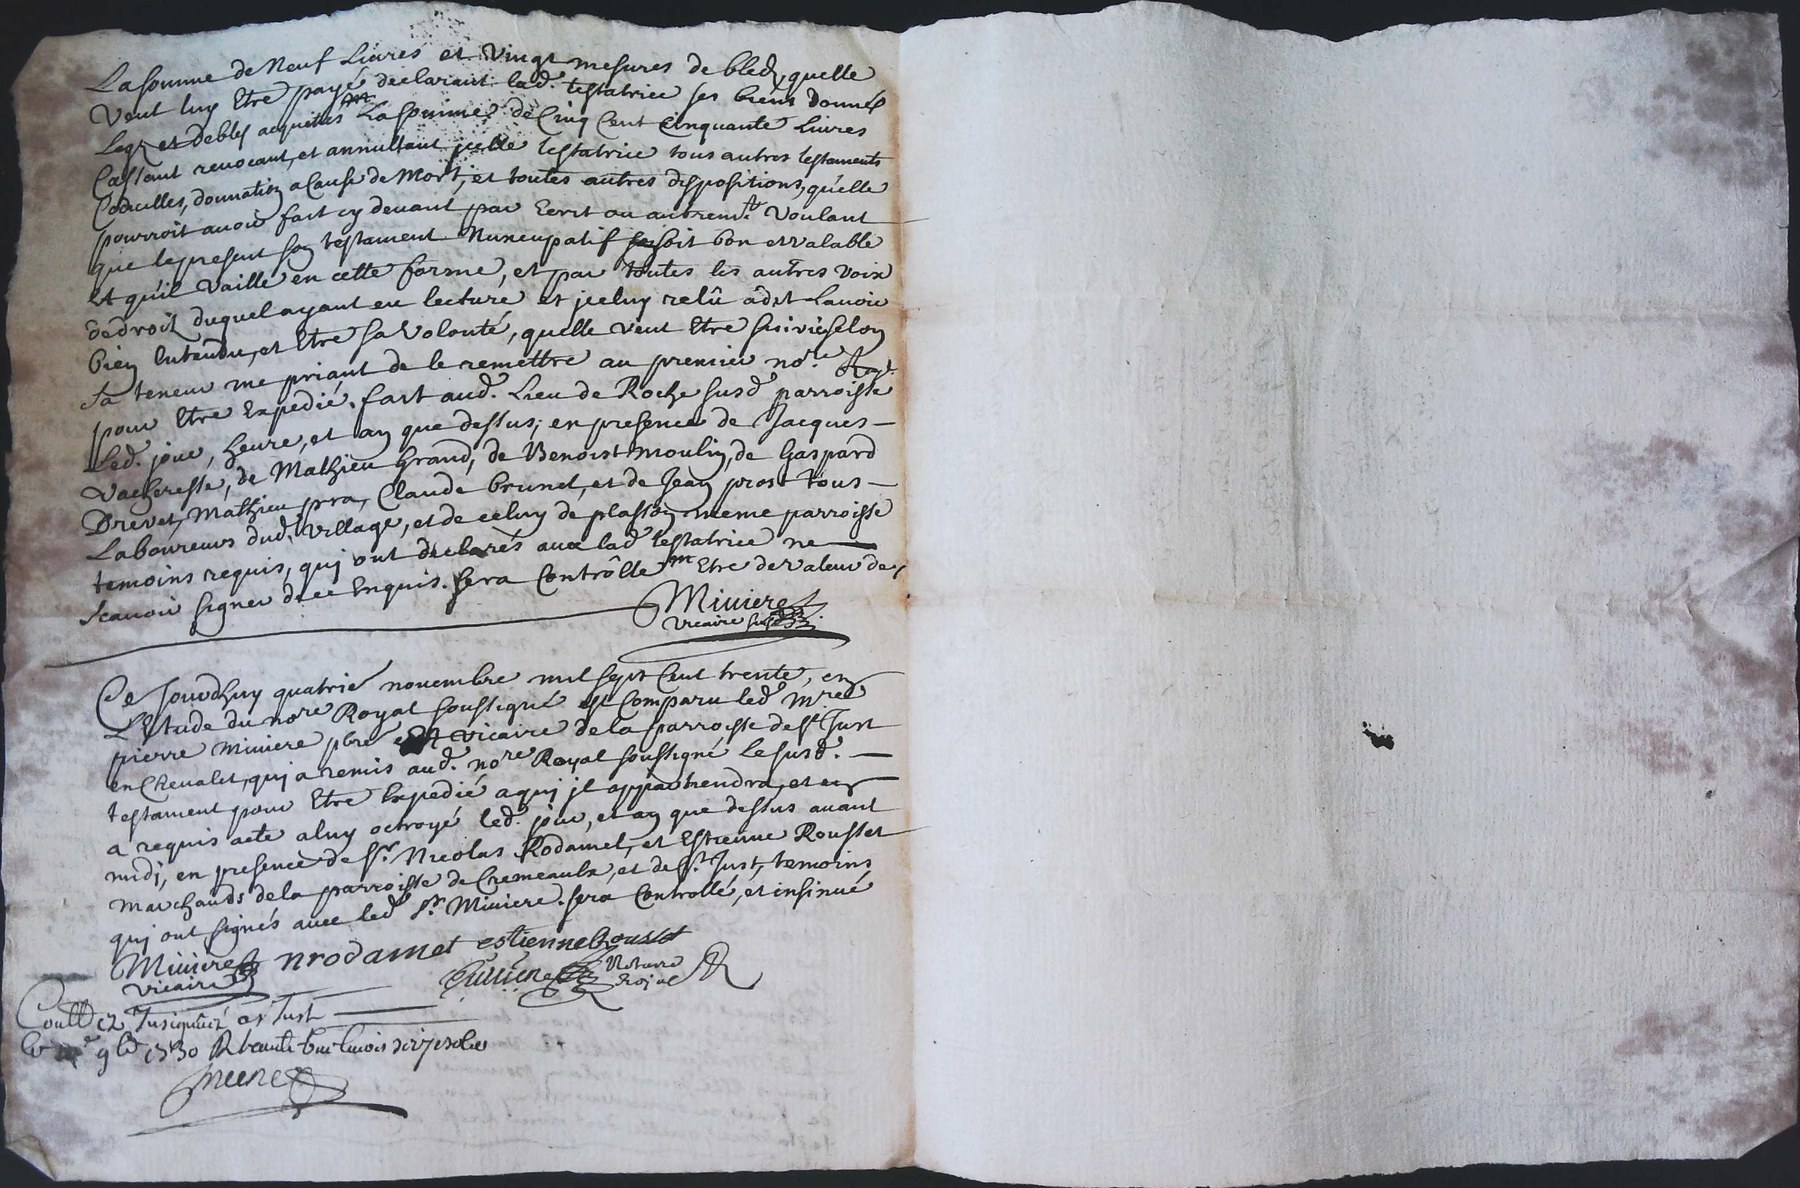 La somme de Neuf Livres et vingt mesures de bled, quelle
veut luy Etre payé declarant lad. testatrice ses biens donnés
Legz et debtes acquittés La somme de Cinq Cent Cinquante Livres
Cassant revocant, et annullant jcelle testatrice tous autres testaments
Codicilles, donnation a Cause de Mort, et toutes autres dispositions, quelle
pourroit avoir fait cy devant par Ecrit ou autremt. Voulant
que le present son testament Nuncupatif soit bon et valable
et qu'il Vaille en cette forme, et par toutes les autres voix
de droit duquel ayant eu lecture et jceluy relû â dit Lavoir
bien Entendu, et Etre sa Volonté, quelle veut Etre suivie selon
sa teneur me priant de le remettre au premier nore. Royl.
pour Etre Expedié. fait aud. Lieu de Roche susd. parroisse
Led. jour, heure, et an que dessus; en presence de Jacques
Vacheresse, de Mathieu Grand, de Benoist Moulin, de Gaspard
Drevet, Mathieu pra, Claude brunel, et de Jean prost Tous
Laboureurs dud. Village, et de celuy de plasson meme parroisse
temoins requis, quj ont declarés avec lad. testatrice ne
scavoir signer de ce Enquis. sera Contrôlle
Etre de valeur de
Miviere
Vicaire susd.
Ce Jourdhuy quatrié novembre mil sept Cent trente, en
L'Etude du nore Royal soussigné est Comparu led. mre
pierre Miviere pbre et vicaire de la parroisse de st Just
en Chevalet, quj a remis aud. nore Royal soussigné le susd.
testament pour Etre Expedié a quj jl appartiendra, et en
a requis acte a luy octroyé led. jour, et an que dessus avant
midj, en presence de sr. Nicolas Rodamel, et Estienne Rousset
marchands de la parroisse de Cremeaulx, et de St. Just, temoins
quj ont signés avec led. sr. Miviere. sera Controllé, et insinué
Miviere
vicaire
nrodamet
estienne Rousset
Notaire
Royal
Coullé et Insignué a St Just
le 9bre 1730 R